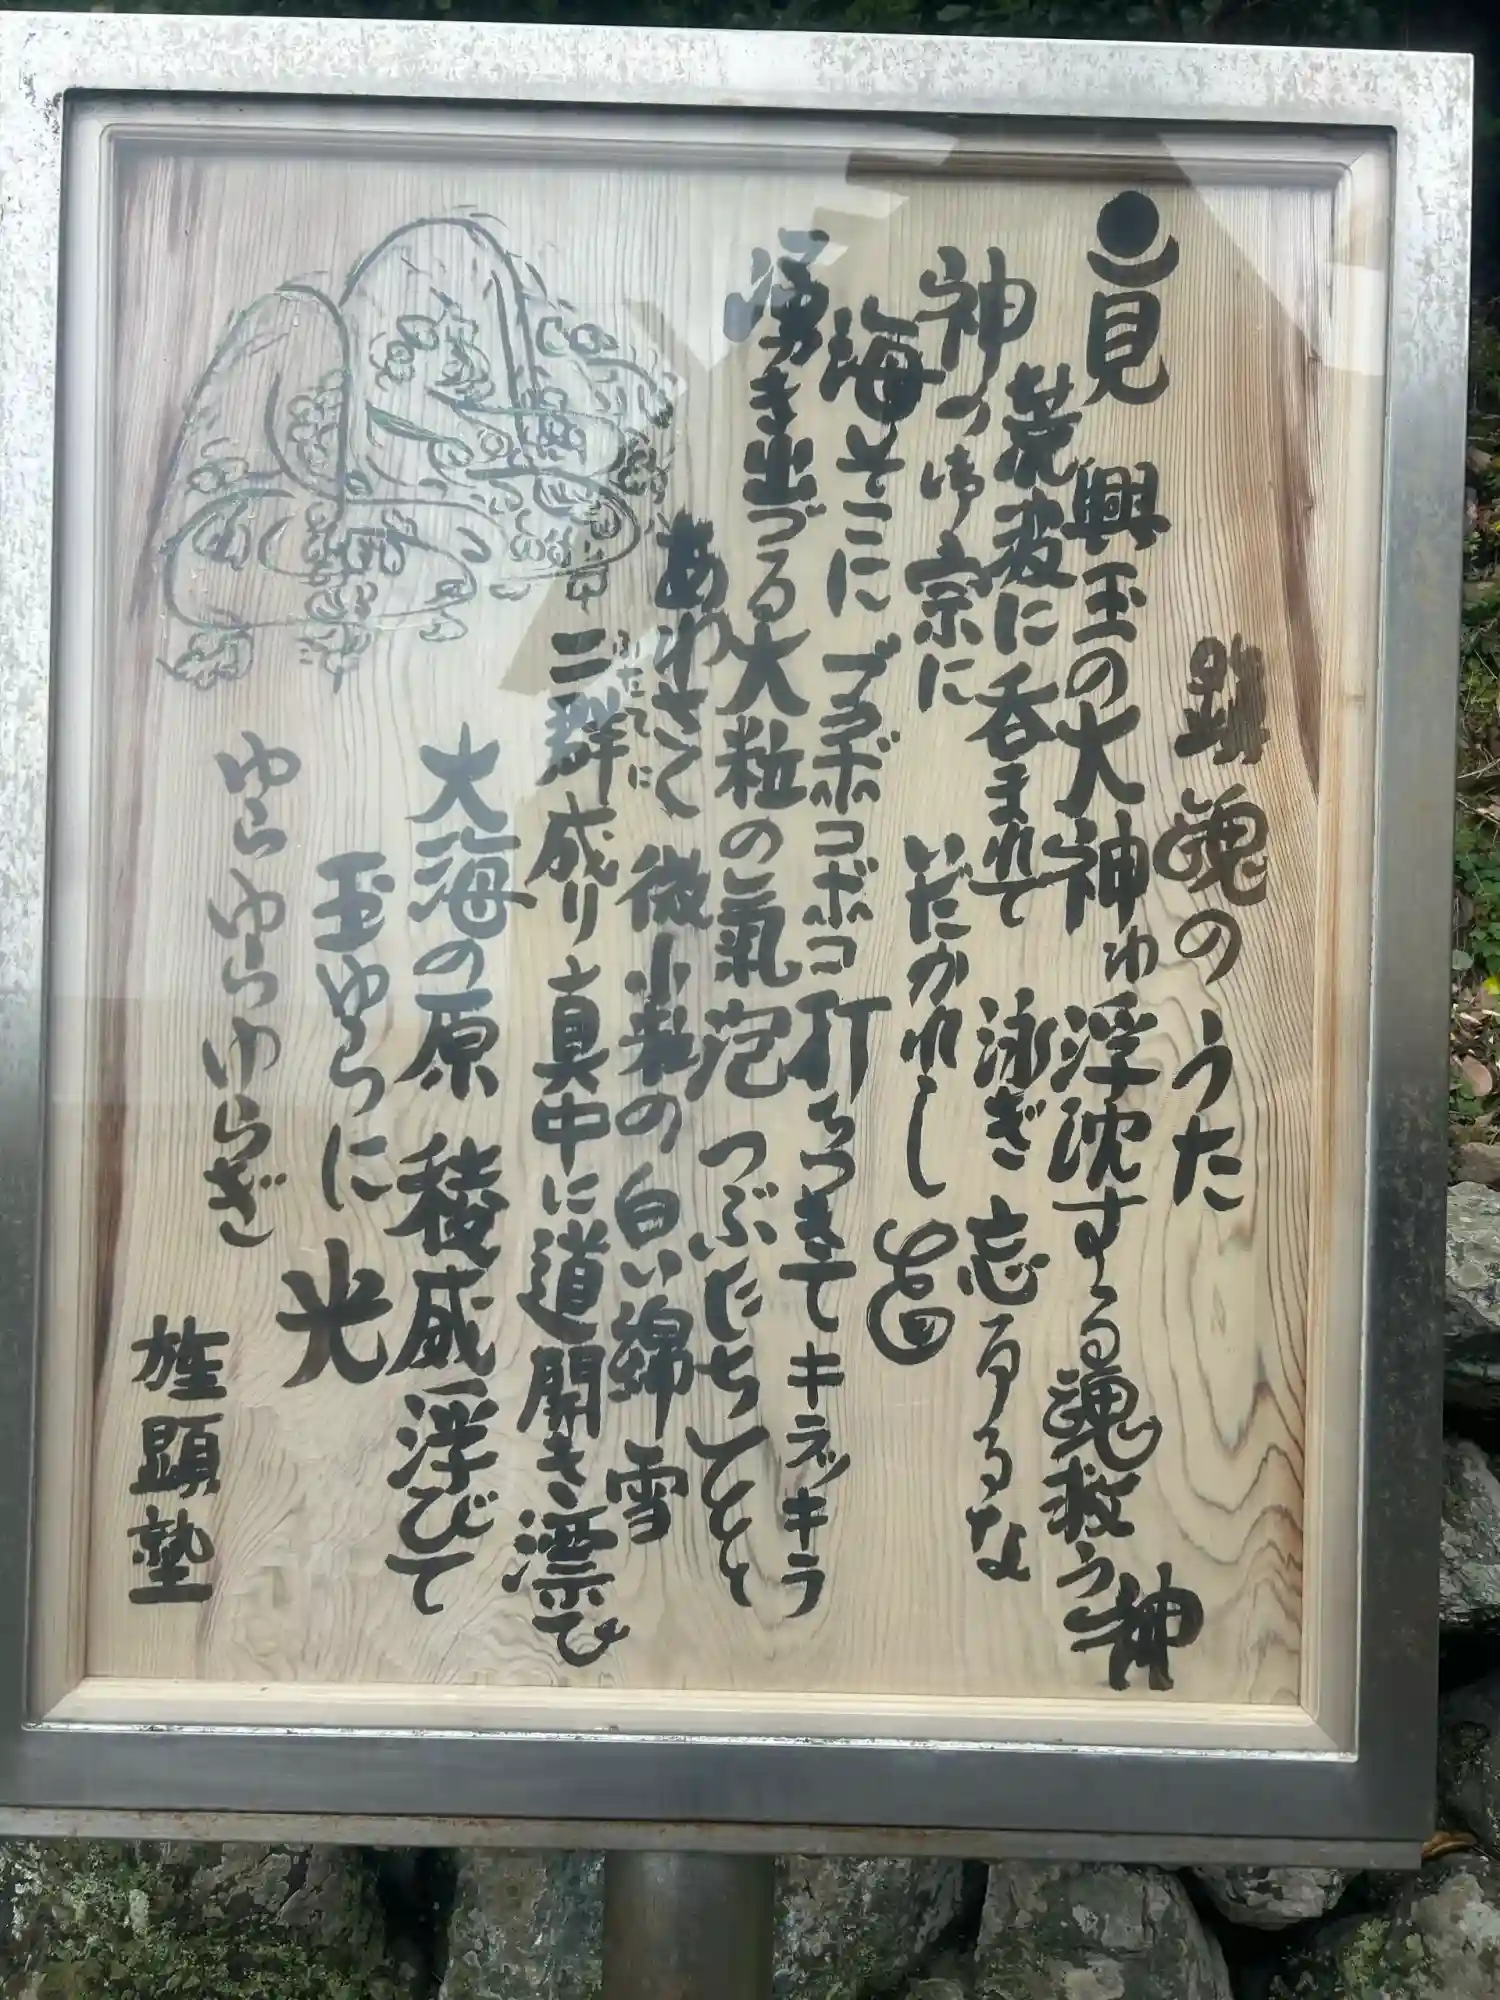 魂のうた
見 興玉の大神わ浮沈する魂救う神
荒波に呑まれて 泳ぎ忘るるな
神つ御宗に いだかれし
海そこに ブクブクボコボコ打ちつきてキラッキラ
湧き出づる大粒の氣泡 つぶだちてとと
あわさく 微小軽の白い綿雪
ふたてに
二群成り真中に道開き漂ひ
大海の原 稜威浮びて
玉ゆらに 光
ゆらゆらゆらぎ
顕塾